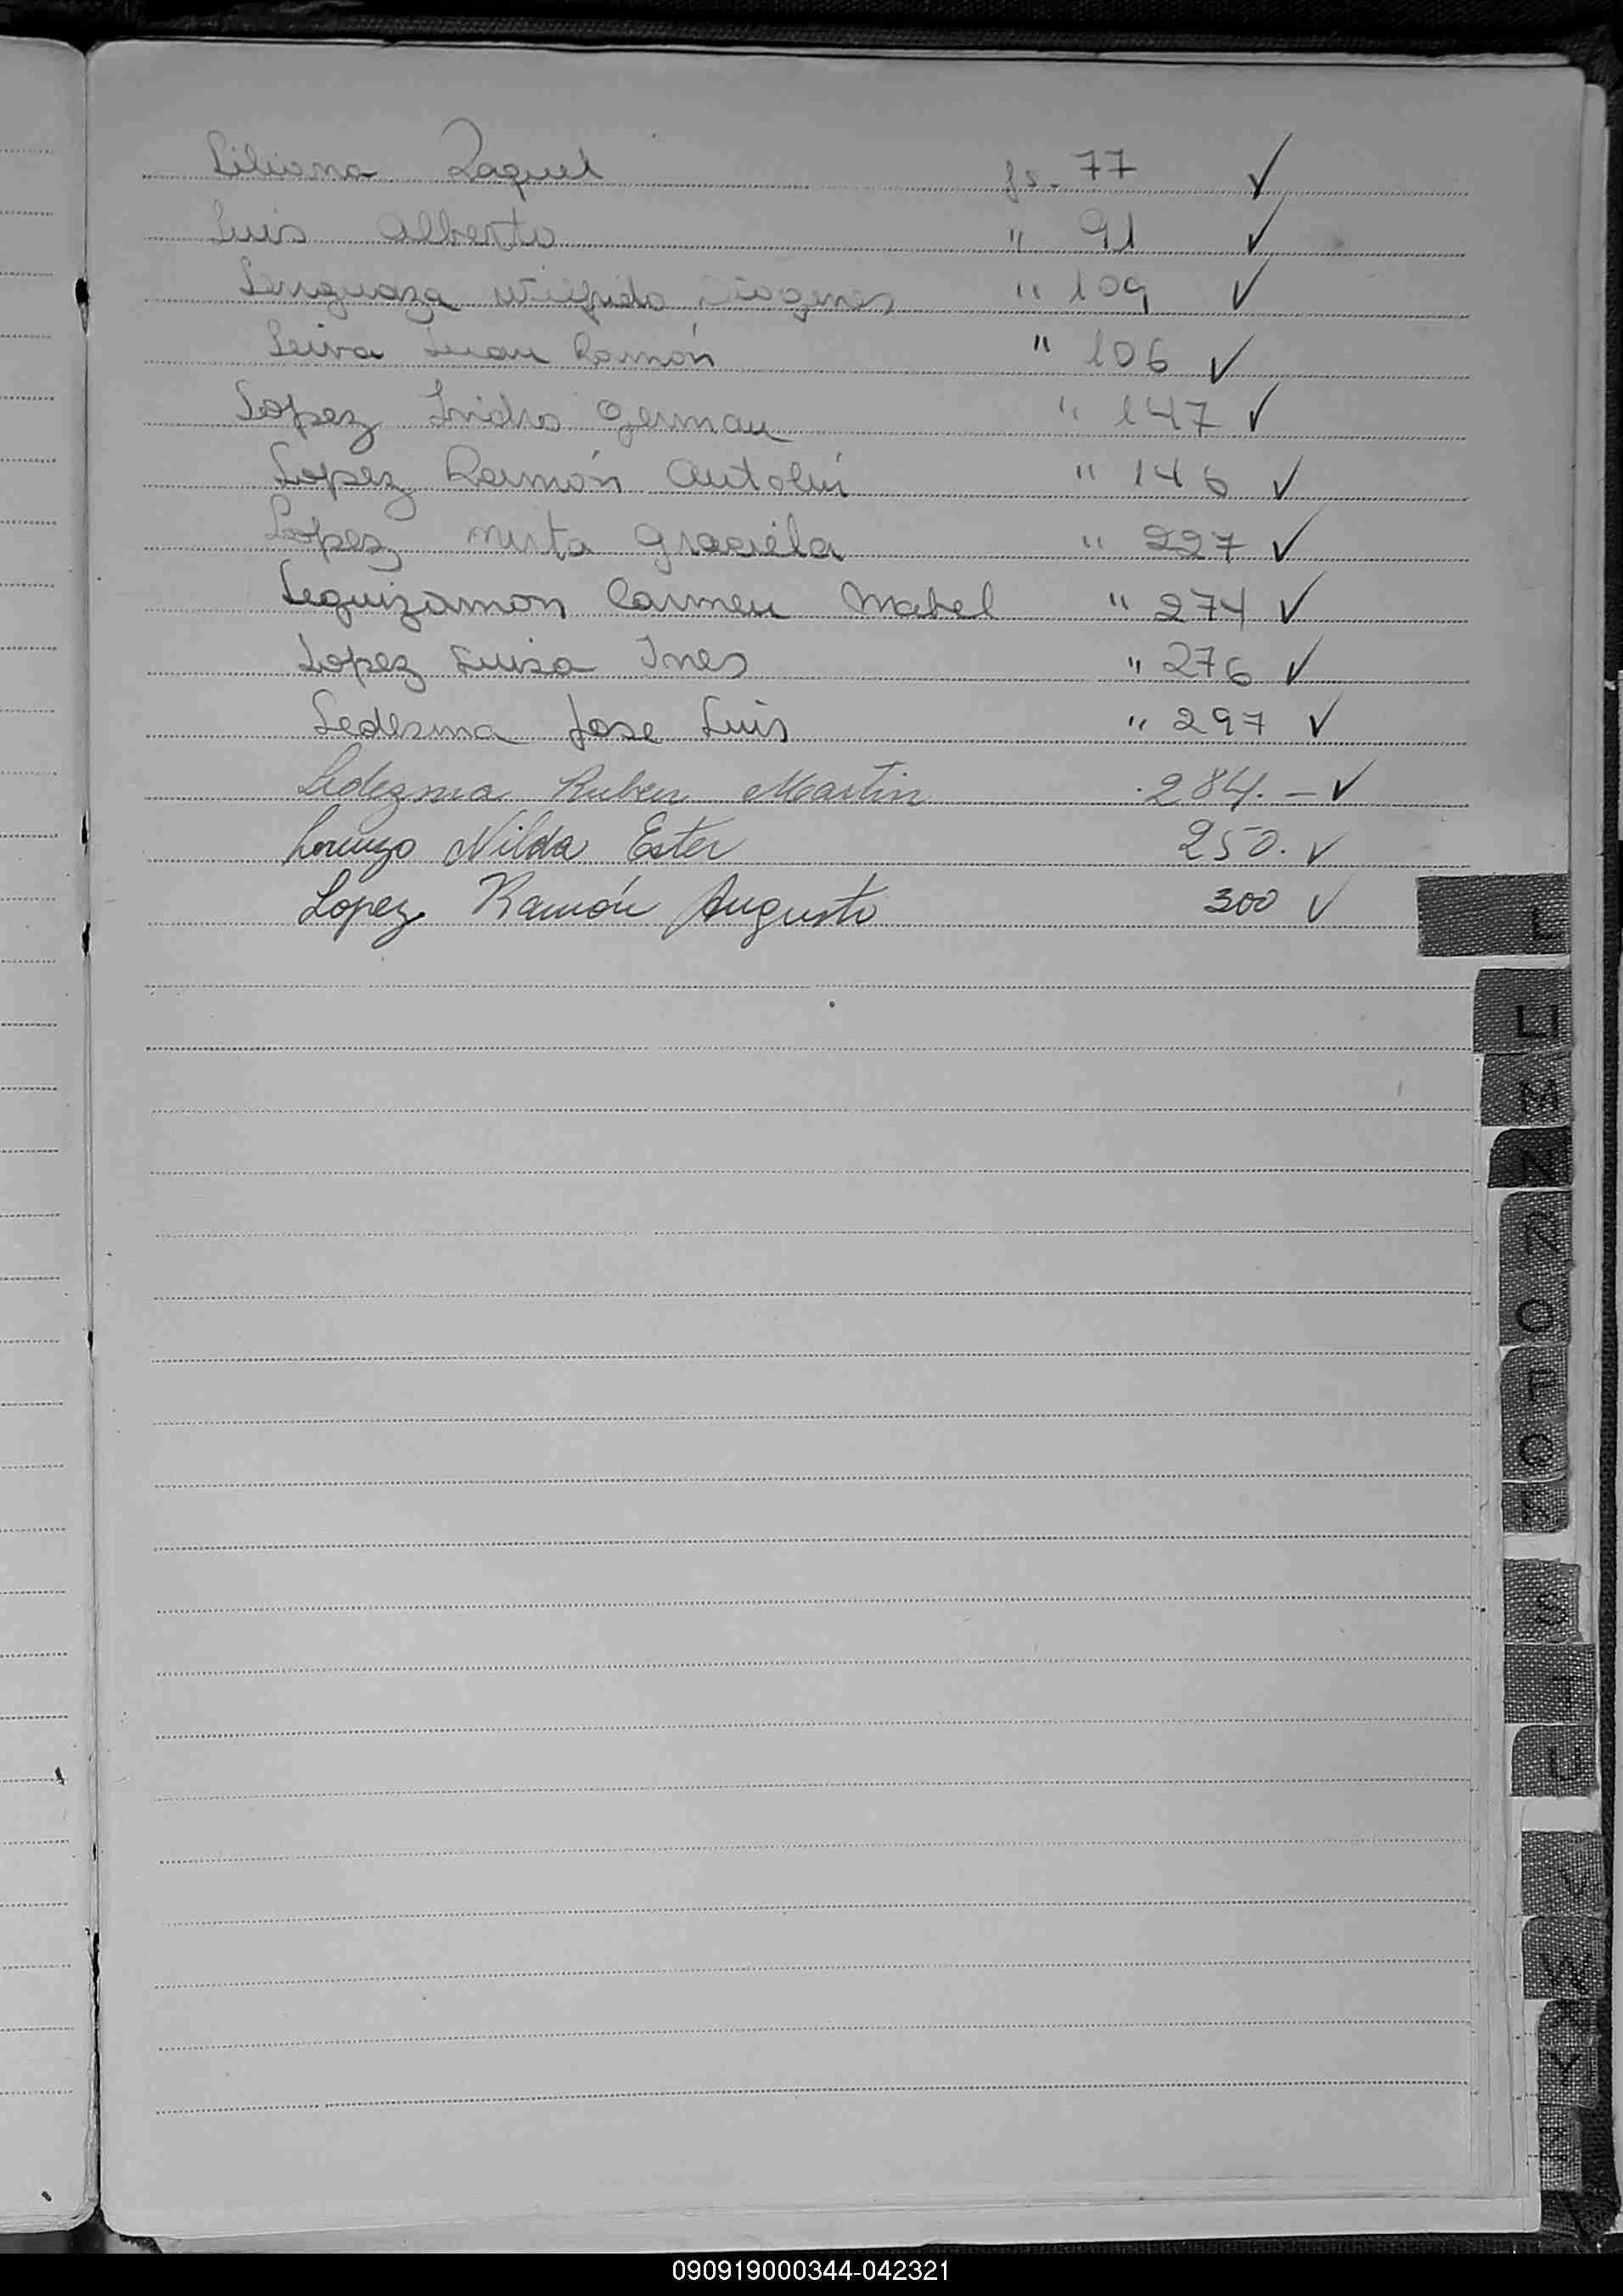 Liliana Raquel fs. 77 ✓
Luis Alberto " 91 ✓
Lenguaza Wilfrido Diogenes " 109 ✓
Leiva Juan Ramón " 106 ✓
Lopez Isidro German " 147 ✓
Lopez Ramón Antolin " 146 ✓
Lopez Mirta Graciela " 227 ✓
Leguizamon Carmen Mabel " 274 ✓
Lopez Luisa Ines " 276 ✓
Ledesma Jose Luis " 297 ✓
Ledezma Ruben Martin 284. - ✓
Lorenzo Nilda Ester 250. ✓
Lopez Ramón Augusto 300 ✓
L
LL
M
N
Ñ
O
P
Q
S
T
U
V
W
X
Y
090919000344-042321